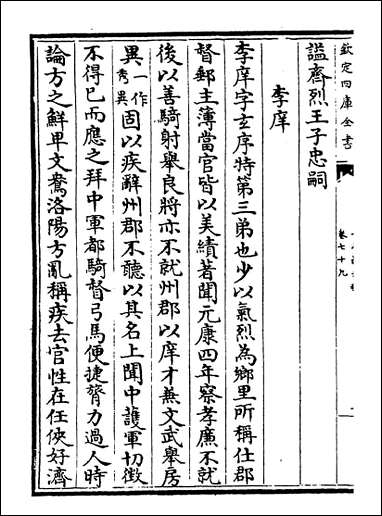 欽定四庫全書
卷七十九
諡齊烈王子忠嗣
李庠
李庠字玄序特第三弟也少以氣烈為鄉里所稱仕郡
督郵主簿當官皆以美績著聞元康四年察孝廉不就
後以善騎射舉良將亦不就州郡以庠才兼文武舉房
異一作秀異固以疾辭州郡不聽以其名上聞中護軍切徴
不得已而應之拜中軍都騎督弓馬便捷膂力過人時
論方之鮮卑文鴦洛陽方亂稱疾去官性在任俠好濟